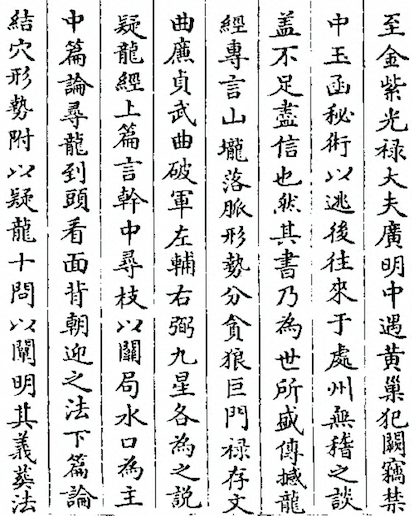 至金紫光禄大夫廣明中遇黄巢犯闕竊禁
中玉函秘術以逃後往來于處州無稽之談
盖不足盡信也然其書乃為世所盛傳撼龍
經專言山壠落脈形勢分貪狼巨門禄存文
曲廉貞武曲破軍左輔右弼九星各為之説
疑龍經上篇言幹中尋枝以關局水口為主
中篇論尋龍到頭看面背朝迎之法下篇論
結穴形勢附以疑龍十問以闡明其義葬法